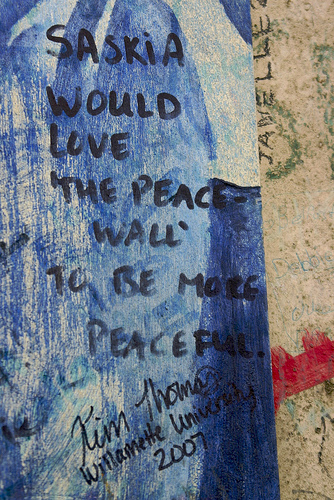 SASKIA
WOULD
LOVE
'THE PEACE-
WALL'
TO BE MORE
PEACEFUL.
Kim Thomas
Willamette University
2007
JANELLE